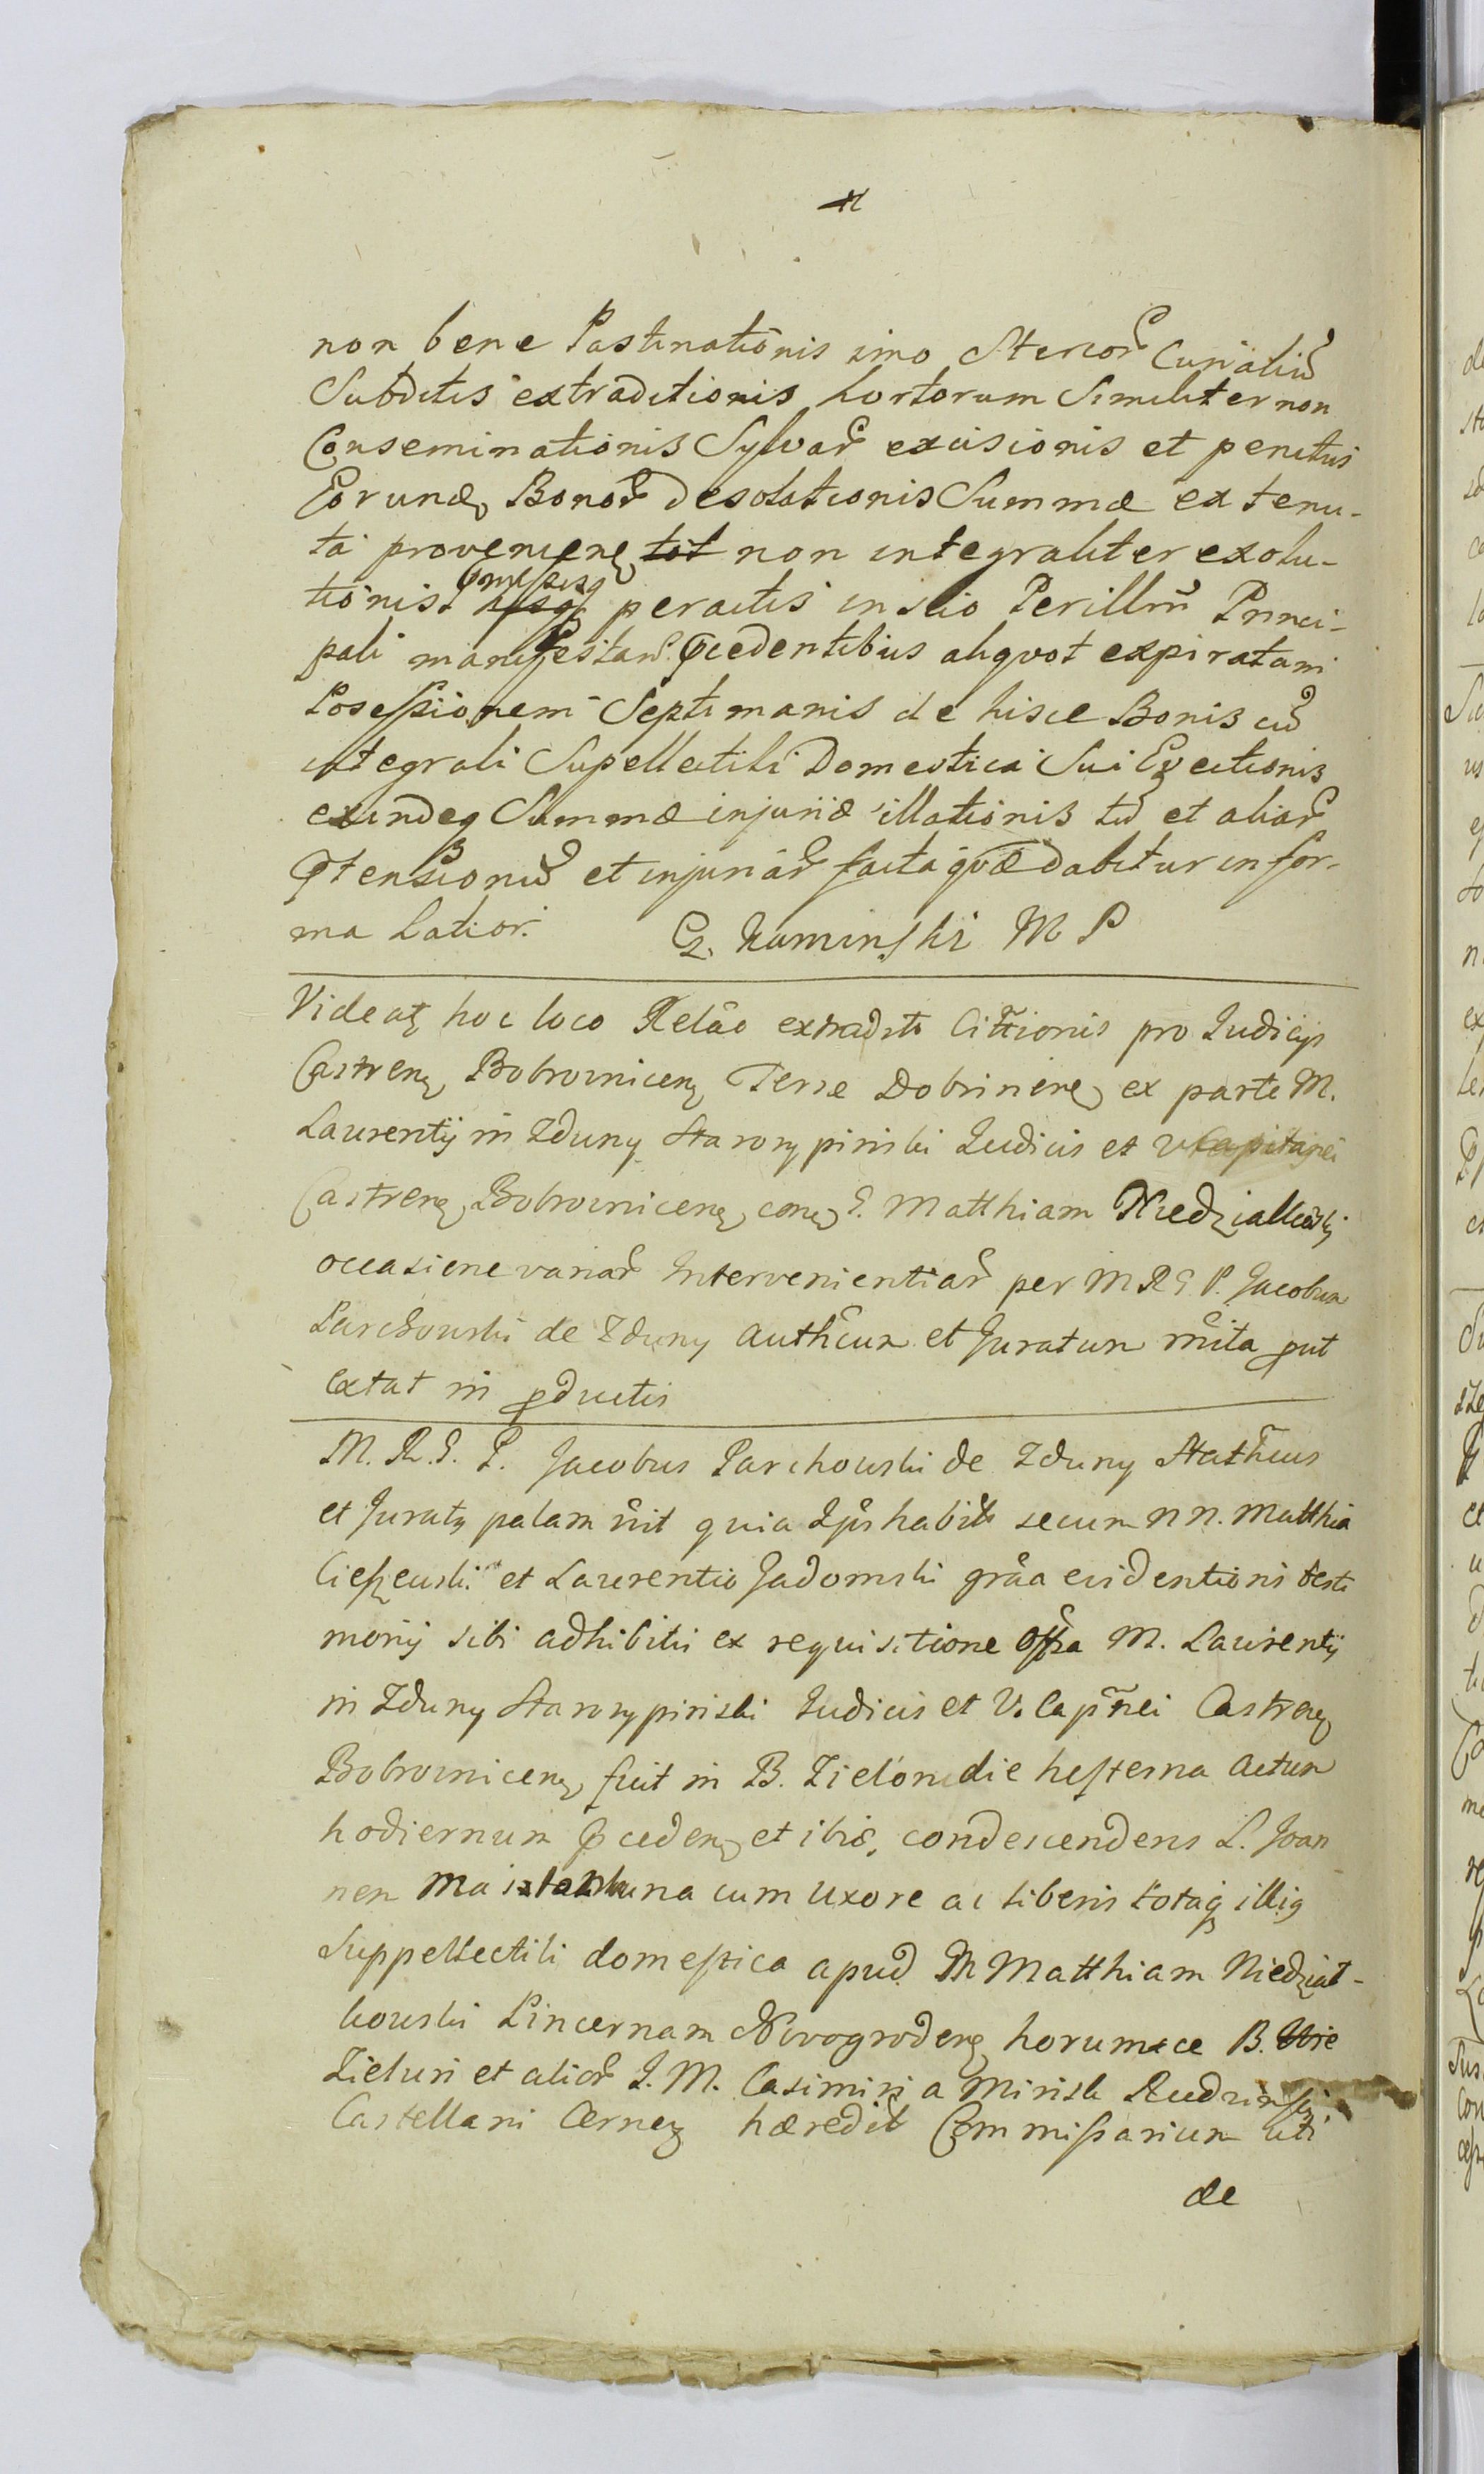 non bene Pastinationis imo Stercor Curialiu
Subditis extraditionis hortorum Similiter non
Conseminationis Sylvar excisionis et penitus
Eorundem Bonor Desolationis Summæ ex tenu-
ta provenienē tot non integraliter exolu-
tionis omissisq hisq peractis inscio Perillrn Princi-
pali manifestan. præcedentibus aliqvot expiratam
Posessionem Septimanis de hisce Bonis cu
integrali Supellectili Domestica Sui Evectionis
exindeq Summæ injuriæ illationis tu et aliar
prætensionu et injuriar facta qvæ dabitur in for-
ma Latior. G. Kaminski M P
Videat hoc loco Relao extradit Cittionis pro Judicijs
Castren Bobrownicen Terræ Dobrinen ex parte M.
Laurentij in Zduny Starorypinski Judicis et vCapitanei
Castren Bobrownicen con G. Matthiam Niedzialkowski
occasione variar Intervenientiar per M R G P. Jacobum
Parchowski de Zduny authcum et Juratum mita put
Extat in productis
M. R. G. P. Jacobus Parchowski de Zduny Stathcus
et Jurat palam rit quia Ips habits secum N N. Matthia
Cieszewski et Laurentio Jadomski graa evidentioris testi
monij sibi adhibitis ex requisitione Offsa M. Laurentij
in Zduny Starorypinski Judicis et V. Capnei Castren
Bobrownicen fuit in B. Zielon die hesterna Actum
hodiernum præceden et ibid. condescendens L. Joan
nem una cum Uxore ac liberis totaq illig
Suppellectili domestica apud M Matthiam Niedzial-
kowski Pincernam Novogroden horumce B.
Zieluń et alior I. M. Casimiri a Minisk Rudzinski
Castellani Cernen hæredit Commissarium uti
de